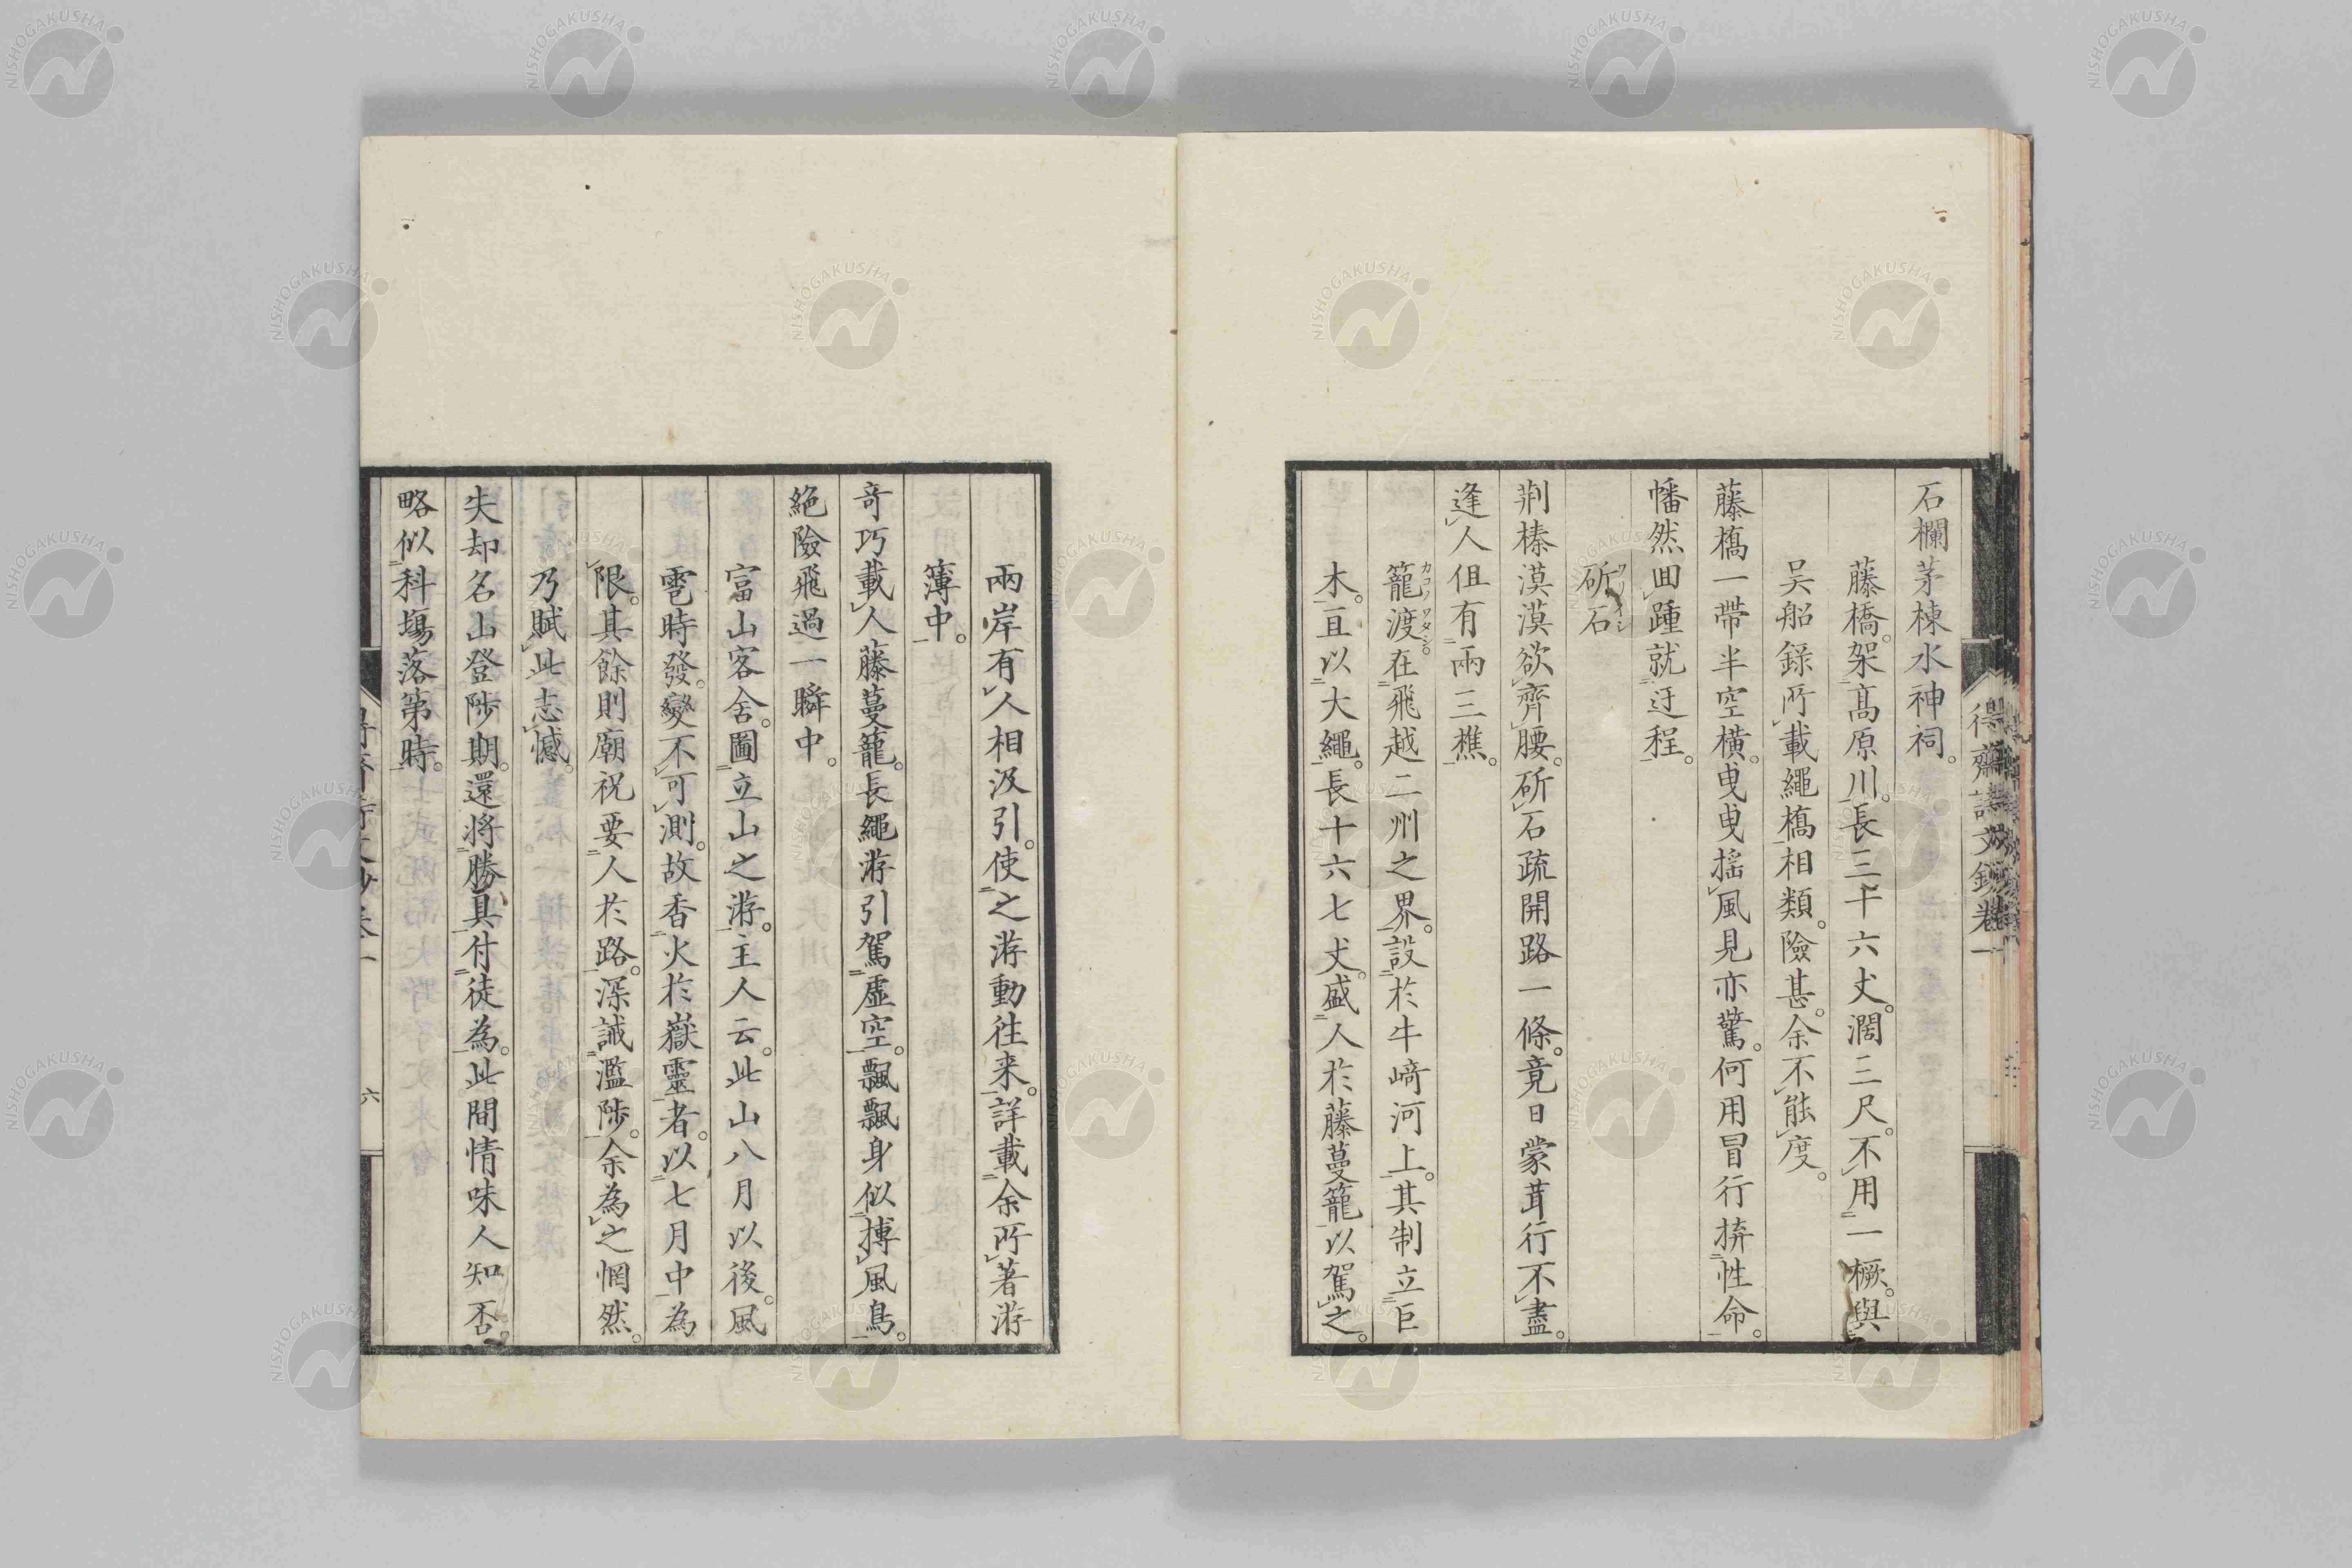 得齋詩文鈔卷一
石欄茅棟水神祠。
藤橋。架高原川。長三十六丈。濶三尺。不用一橛。與
吳船錄所載繩橋相類。險甚。余不能度。
藤橋一帶半空橫。曳曳搖風見亦驚。何用冒行拚性命。
幡然回踵就迂程。
斫石
荆榛漠漠欲齊腰。斫石疏開路一條。竟日蒙茸行不盡。
逢人但有兩三樵。
籠渡。在飛越二州之界。設於牛﨑河上。其制立巨
木。亘以大繩。長十六七丈。盛人於藤蔓籠以駕之。
兩岸有人相汲引。使之游動往来。詳載余所著游
簿中。
奇巧載人藤蔓籠。長繩游引駕虛空。飄飄身似搏風鳥。
絕險飛過一瞬中。
富山客舍。圖立山之游。主人云。此山八月以後。風
雹時發。變不可測。故香火於嶽靈者。以七月中為
限。其餘則廟祝要人於路。深誡濫陟。余為之惘然。
乃賦此志憾。
失却名山登陟期。還將勝具付徒為。此間情味人知否。
略似科場落第時。
六